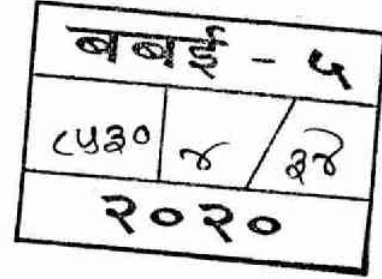 बबई - ५
८५३० ४ / ३४
२०२०